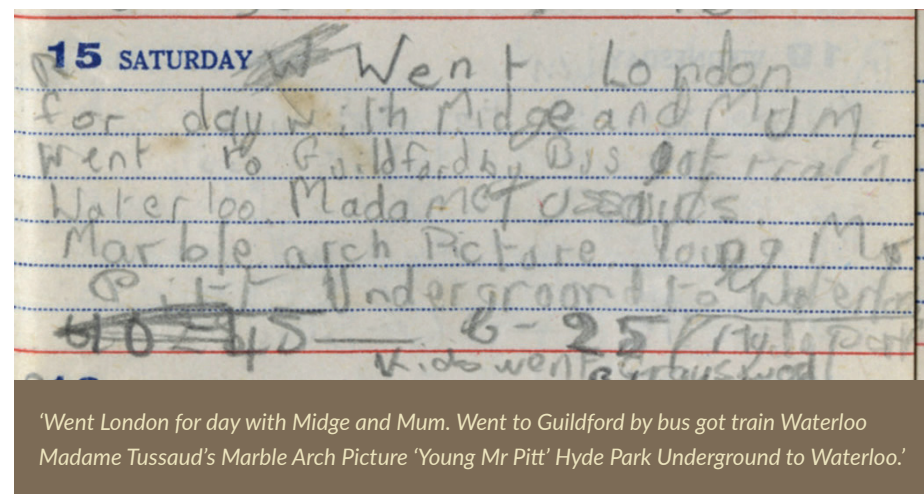 15 SATURDAY Went London
for day with Midge and Mum
Went to Guildford by Bus got train
Waterloo. Madame Tussauds.
Marble arch Picture. Young Mr
Pitt Underground to Waterloo
45 — 6-25 / Hyde Park
Kids went
‘Went London for day with Midge and Mum. Went to Guildford by bus got train Waterloo
Madame Tussaud’s Marble Arch Picture ‘Young Mr Pitt’ Hyde Park Underground to Waterloo.’